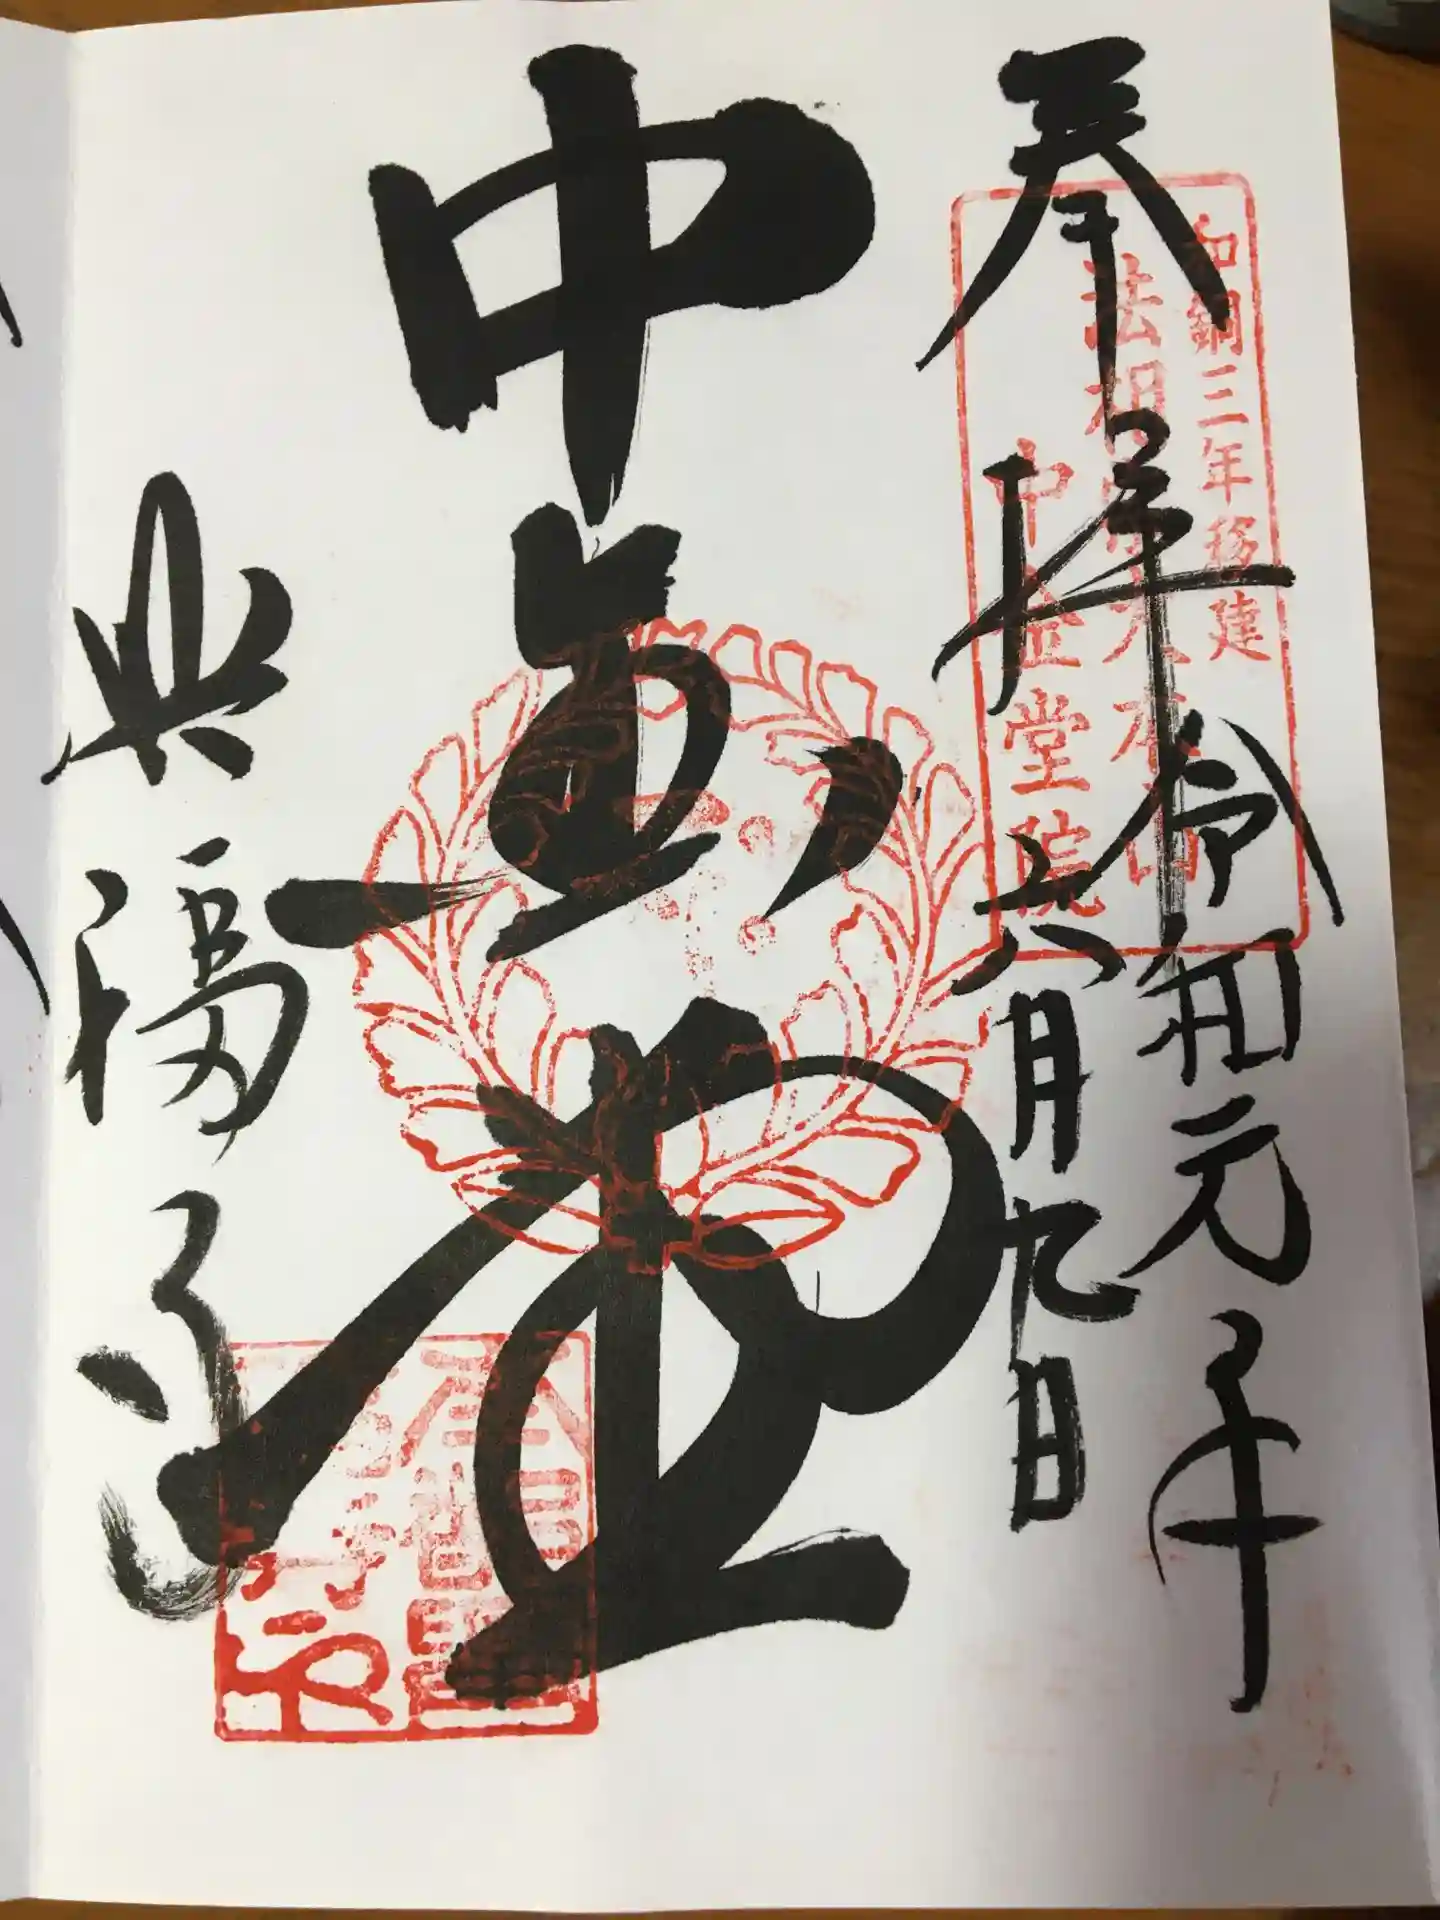 奉拝
令和元年
六月九日
中金堂
興福寺
和銅三年移建
法相宗大本山
中金堂院